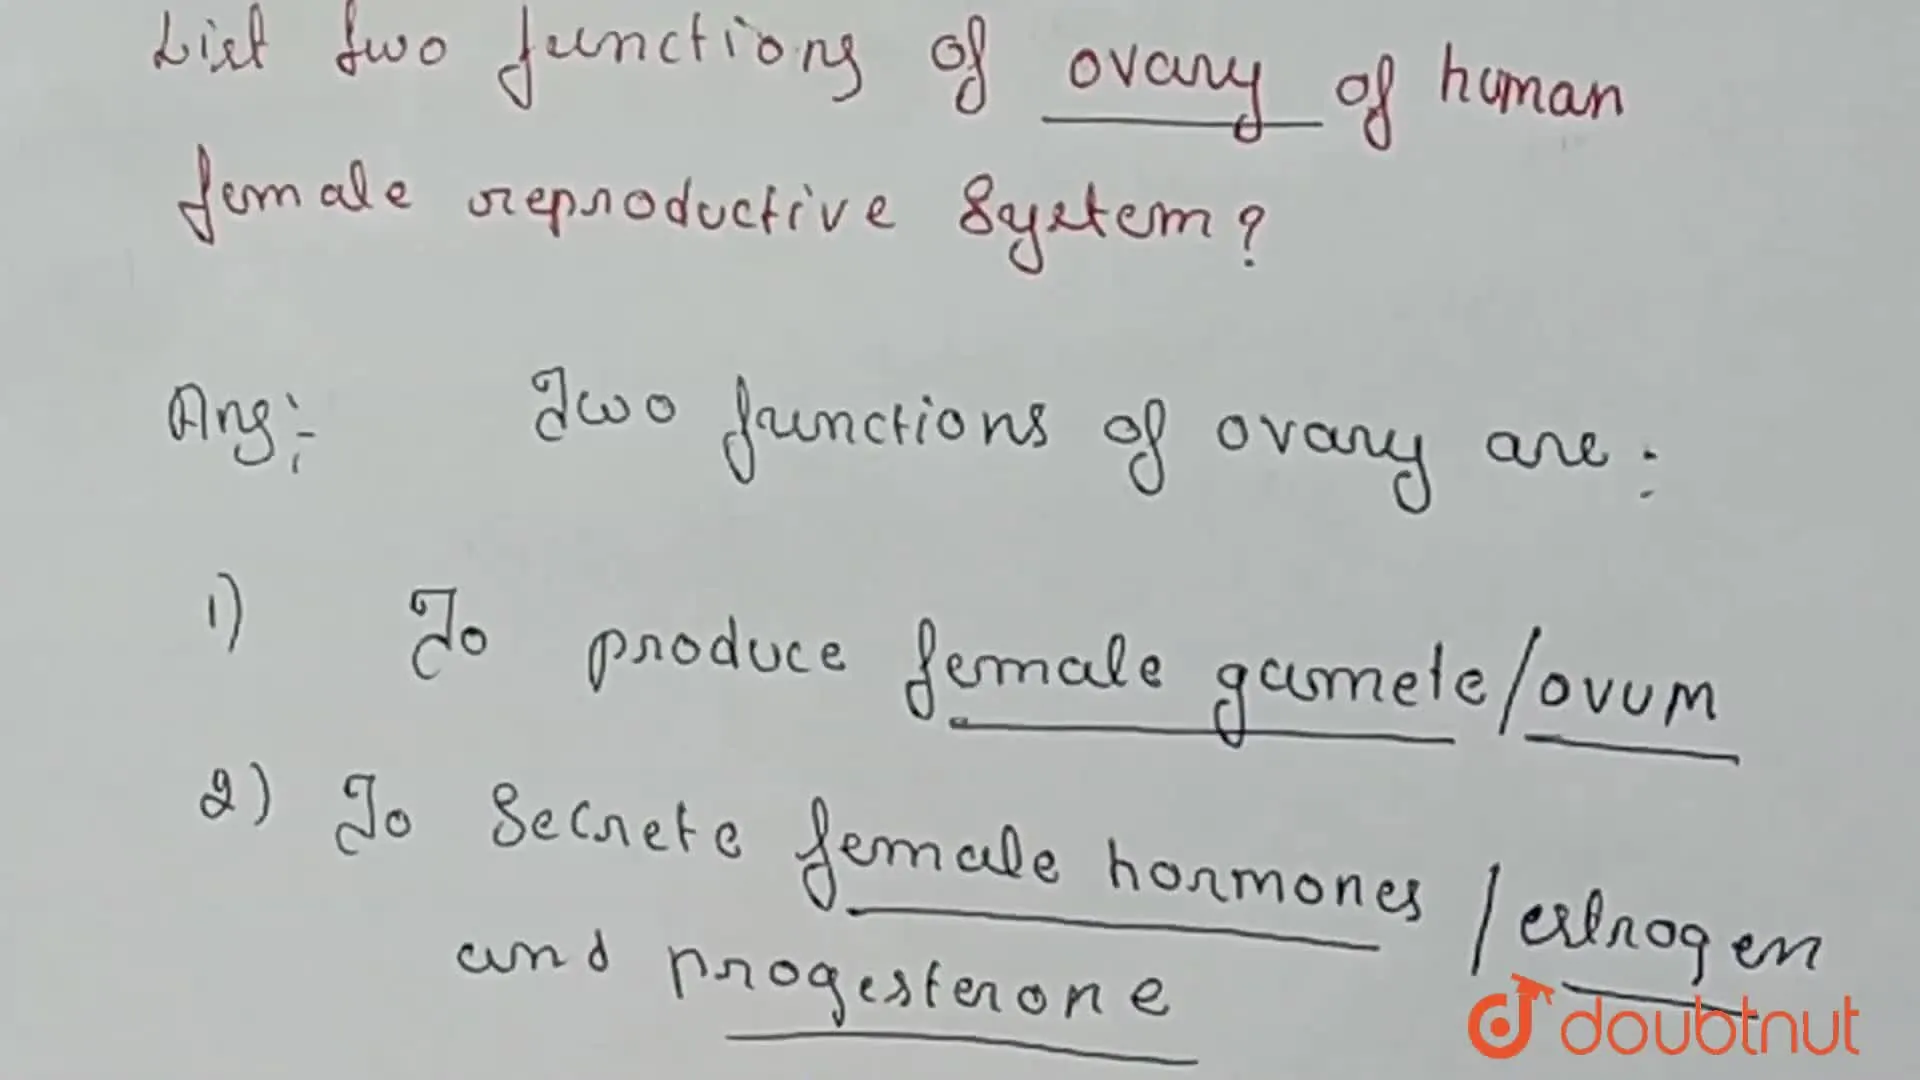 List two functions of ovary of human
female reproductive system?
Ans:- Two functions of ovary are:
1) To produce female gamete/ovum
2) To secrete female hormones / estrogen
and progesterone
doubtnut